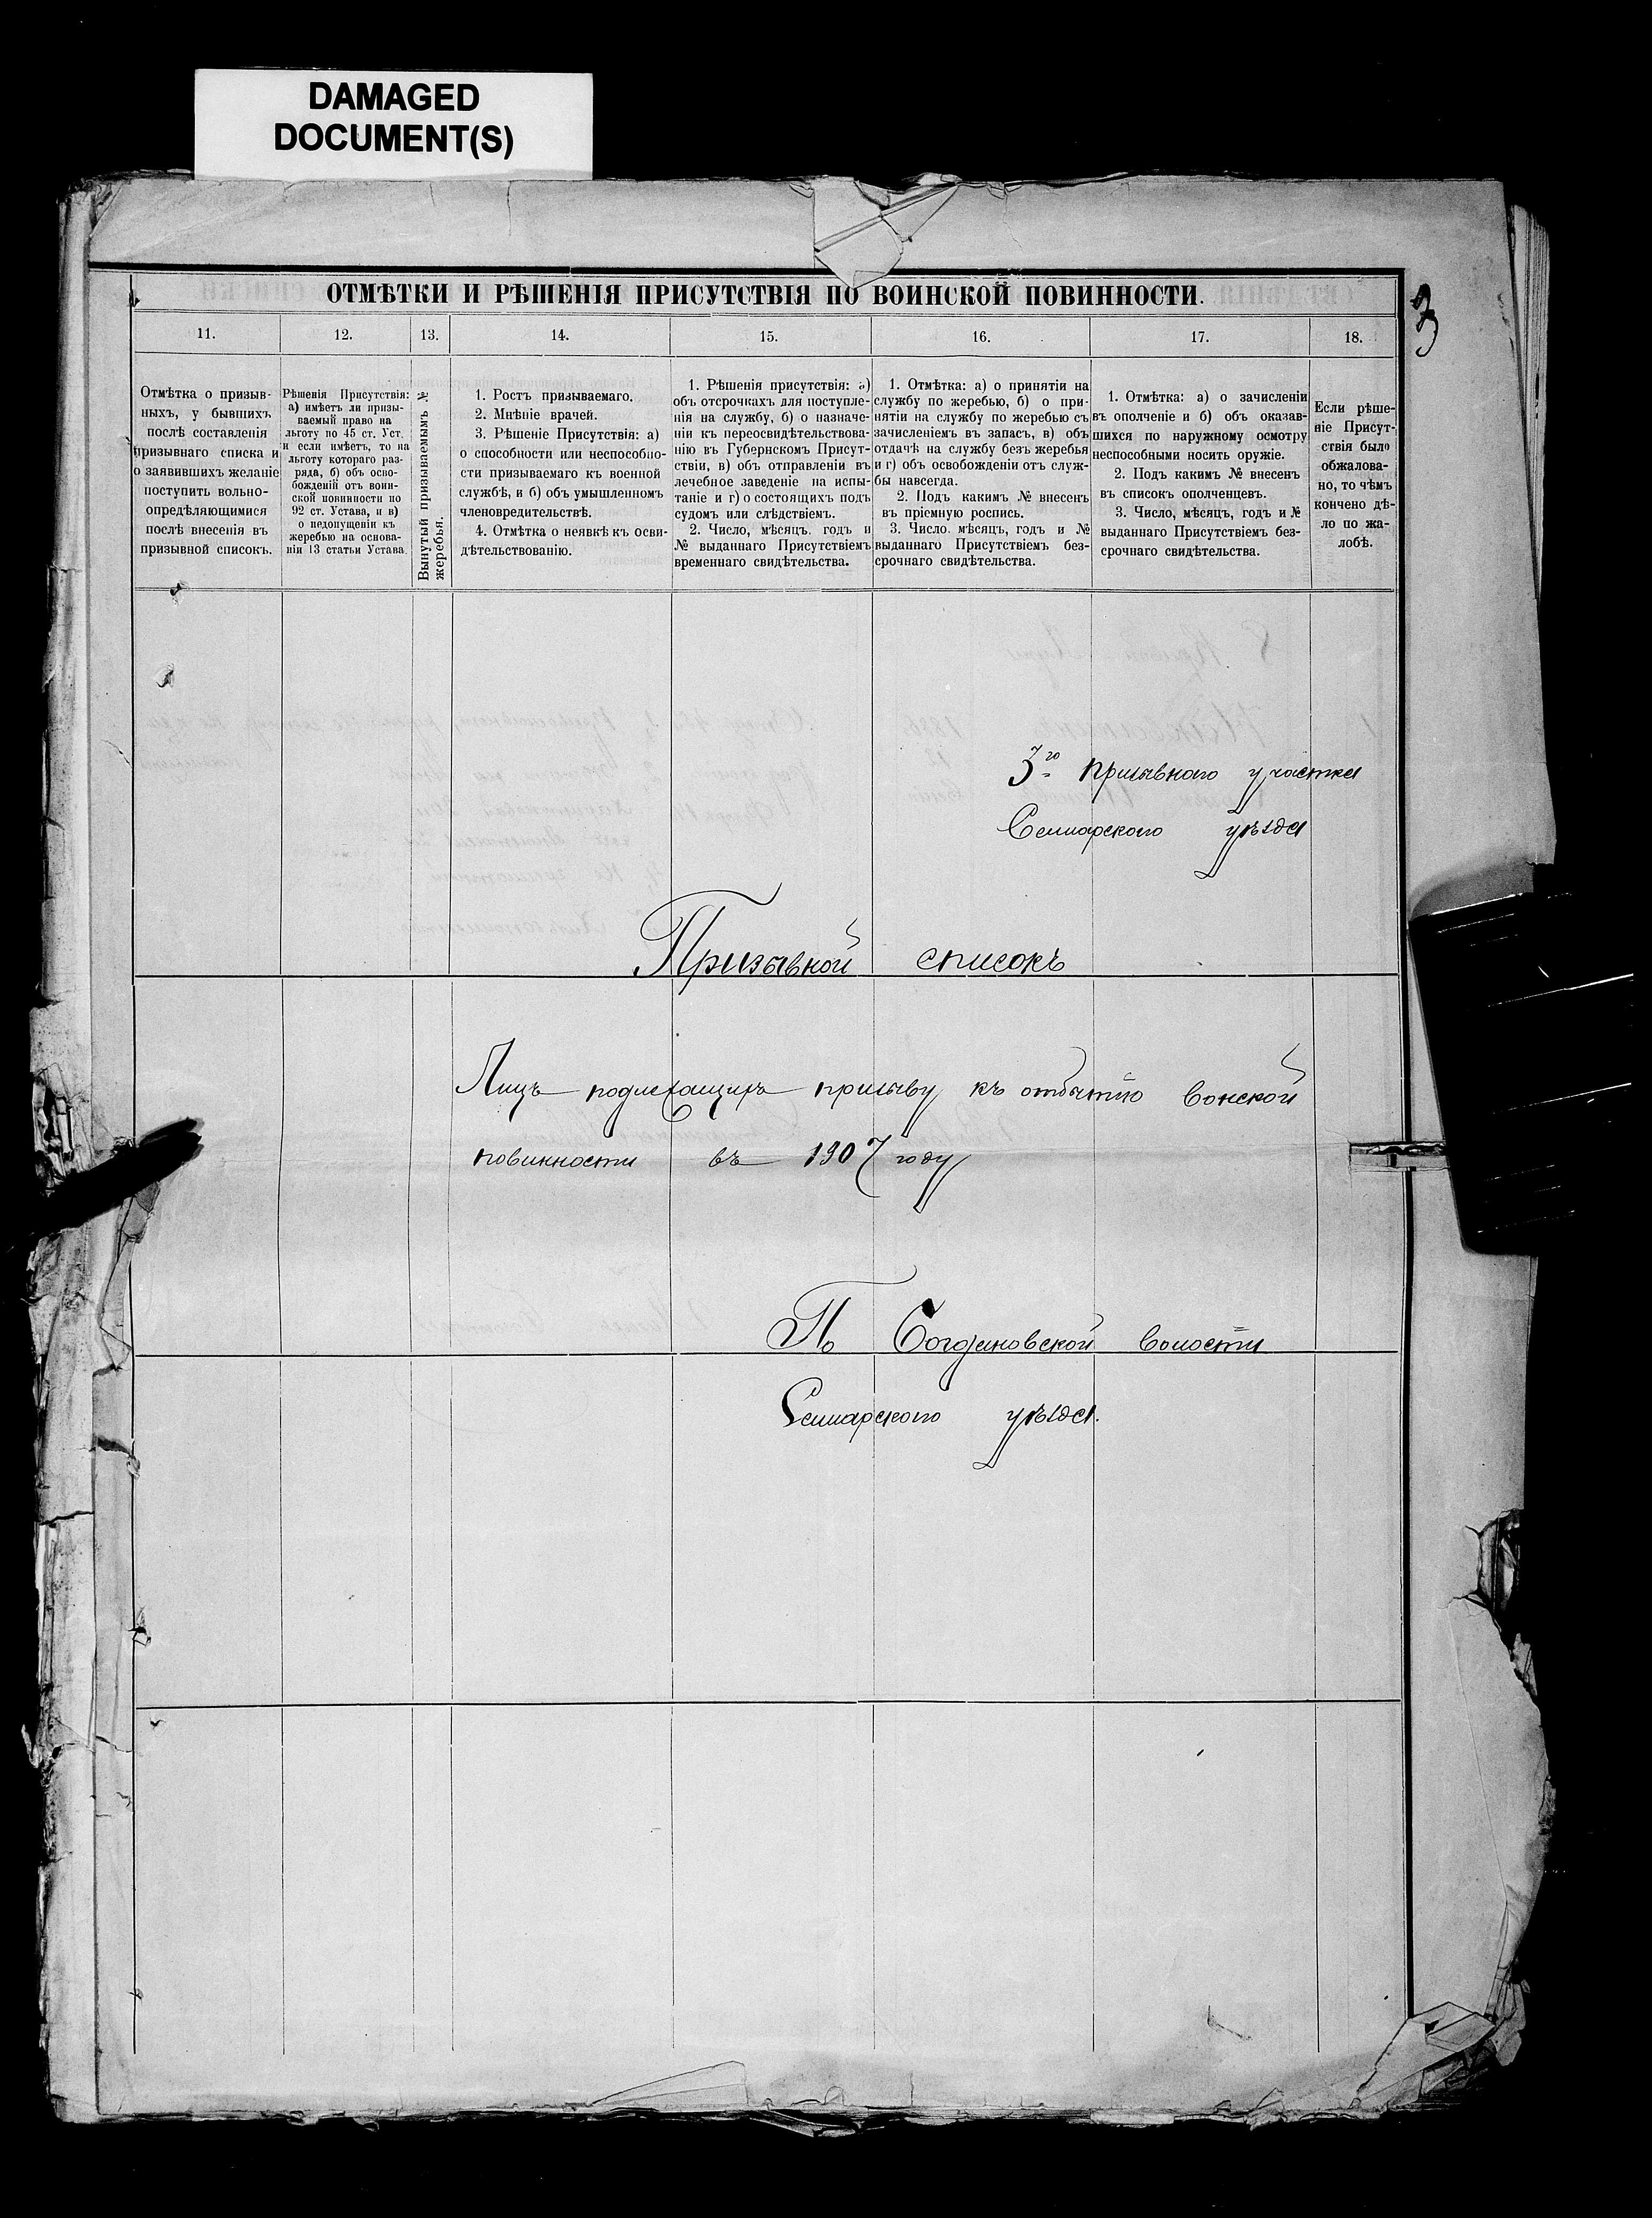 DAMAGED
DOCUMENT(S)
ОТМѢТКИ И РѢШЕНІЯ ПРИСУТСТВІЯ ПО ВОИНСКОЙ ПОВИННОСТИ.
11.
12.
13.
14.
15.
16.
17.
18.
Отмѣтка о призыв-
ныхъ, у бывшихъ
послѣ составленія
призывнаго списка и
о заявившихъ желаніе
поступить вольно-
опредѣляющимися
послѣ внесенія въ
призывной списокъ.
Рѣшенія Присутствія:
а) имѣетъ ли призы-
ваемый право на
льготу по 45 ст. Уст.
и если имѣетъ, то на
льготу котораго раз-
ряда, б) объ осво-
божденіи отъ воин-
ской повинности по
92 ст. Устава, и в)
о недопущеніи къ
жеребью на основа-
ніи 13 статьи Устава.
Вынутый призываемымъ №
жеребья.
1. Ростъ призываемаго.
2. Мнѣніе врачей.
3. Рѣшеніе Присутствія: а)
о способности или неспособно-
сти призываемаго къ военной
службѣ, и б) объ умышленномъ
членовредительствѣ.
4. Отмѣтка о неявкѣ къ осви-
дѣтельствованію.
1. Рѣшенія присутствія: а)
объ отсрочкахъ для поступле-
нія на службу, б) о назначе-
ніи къ переосвидѣтельствова-
нію въ Губернскомъ Присут-
ствіи, в) объ отправленіи въ
лечебное заведеніе на испы-
таніе и г) о состоящихъ подъ
судомъ или слѣдствіемъ.
2. Число, мѣсяцъ. годъ и
№ выданнаго Присутствіемъ
временнаго свидѣтельства.
1. Отмѣтка: а) о принятіи на
службу по жеребью, б) о при-
нятіи на службу по жеребью съ
зачисленіемъ въ запасъ, в) объ
отдачѣ на службу безъ жеребья
и г) объ освобожденіи отъ служ-
бы навсегда.
2. Подъ какимъ № внесенъ
въ пріемную роспись.
3. Число. мѣсяцъ, годъ и №
выданнаго Присутствіемъ без-
срочнаго свидѣтельства.
1. Отмѣтка: а) о зачисленіи
въ ополченіе и б) объ оказав-
шихся по наружному осмотру
неспособными носить оружіе.
2. Подъ какимъ № внесенъ
въ списокъ ополченцевъ.
3. Число, мѣсяцъ, годъ и №
выданнаго Присутствіемъ без-
срочнаго свидѣтельства.
Если рѣше-
ніе Присут-
ствія было
обжалова-
но, то чѣмъ
кончено дѣ-
ло по жа-
лобѣ.
3го призывного участка
Самарского уѣзда
Призывной списокъ
Лицъ подлежащихъ призыву къ отбытію вонской
повинности въ 1907 году
По Богдановской волости
Самарского уѣзда.